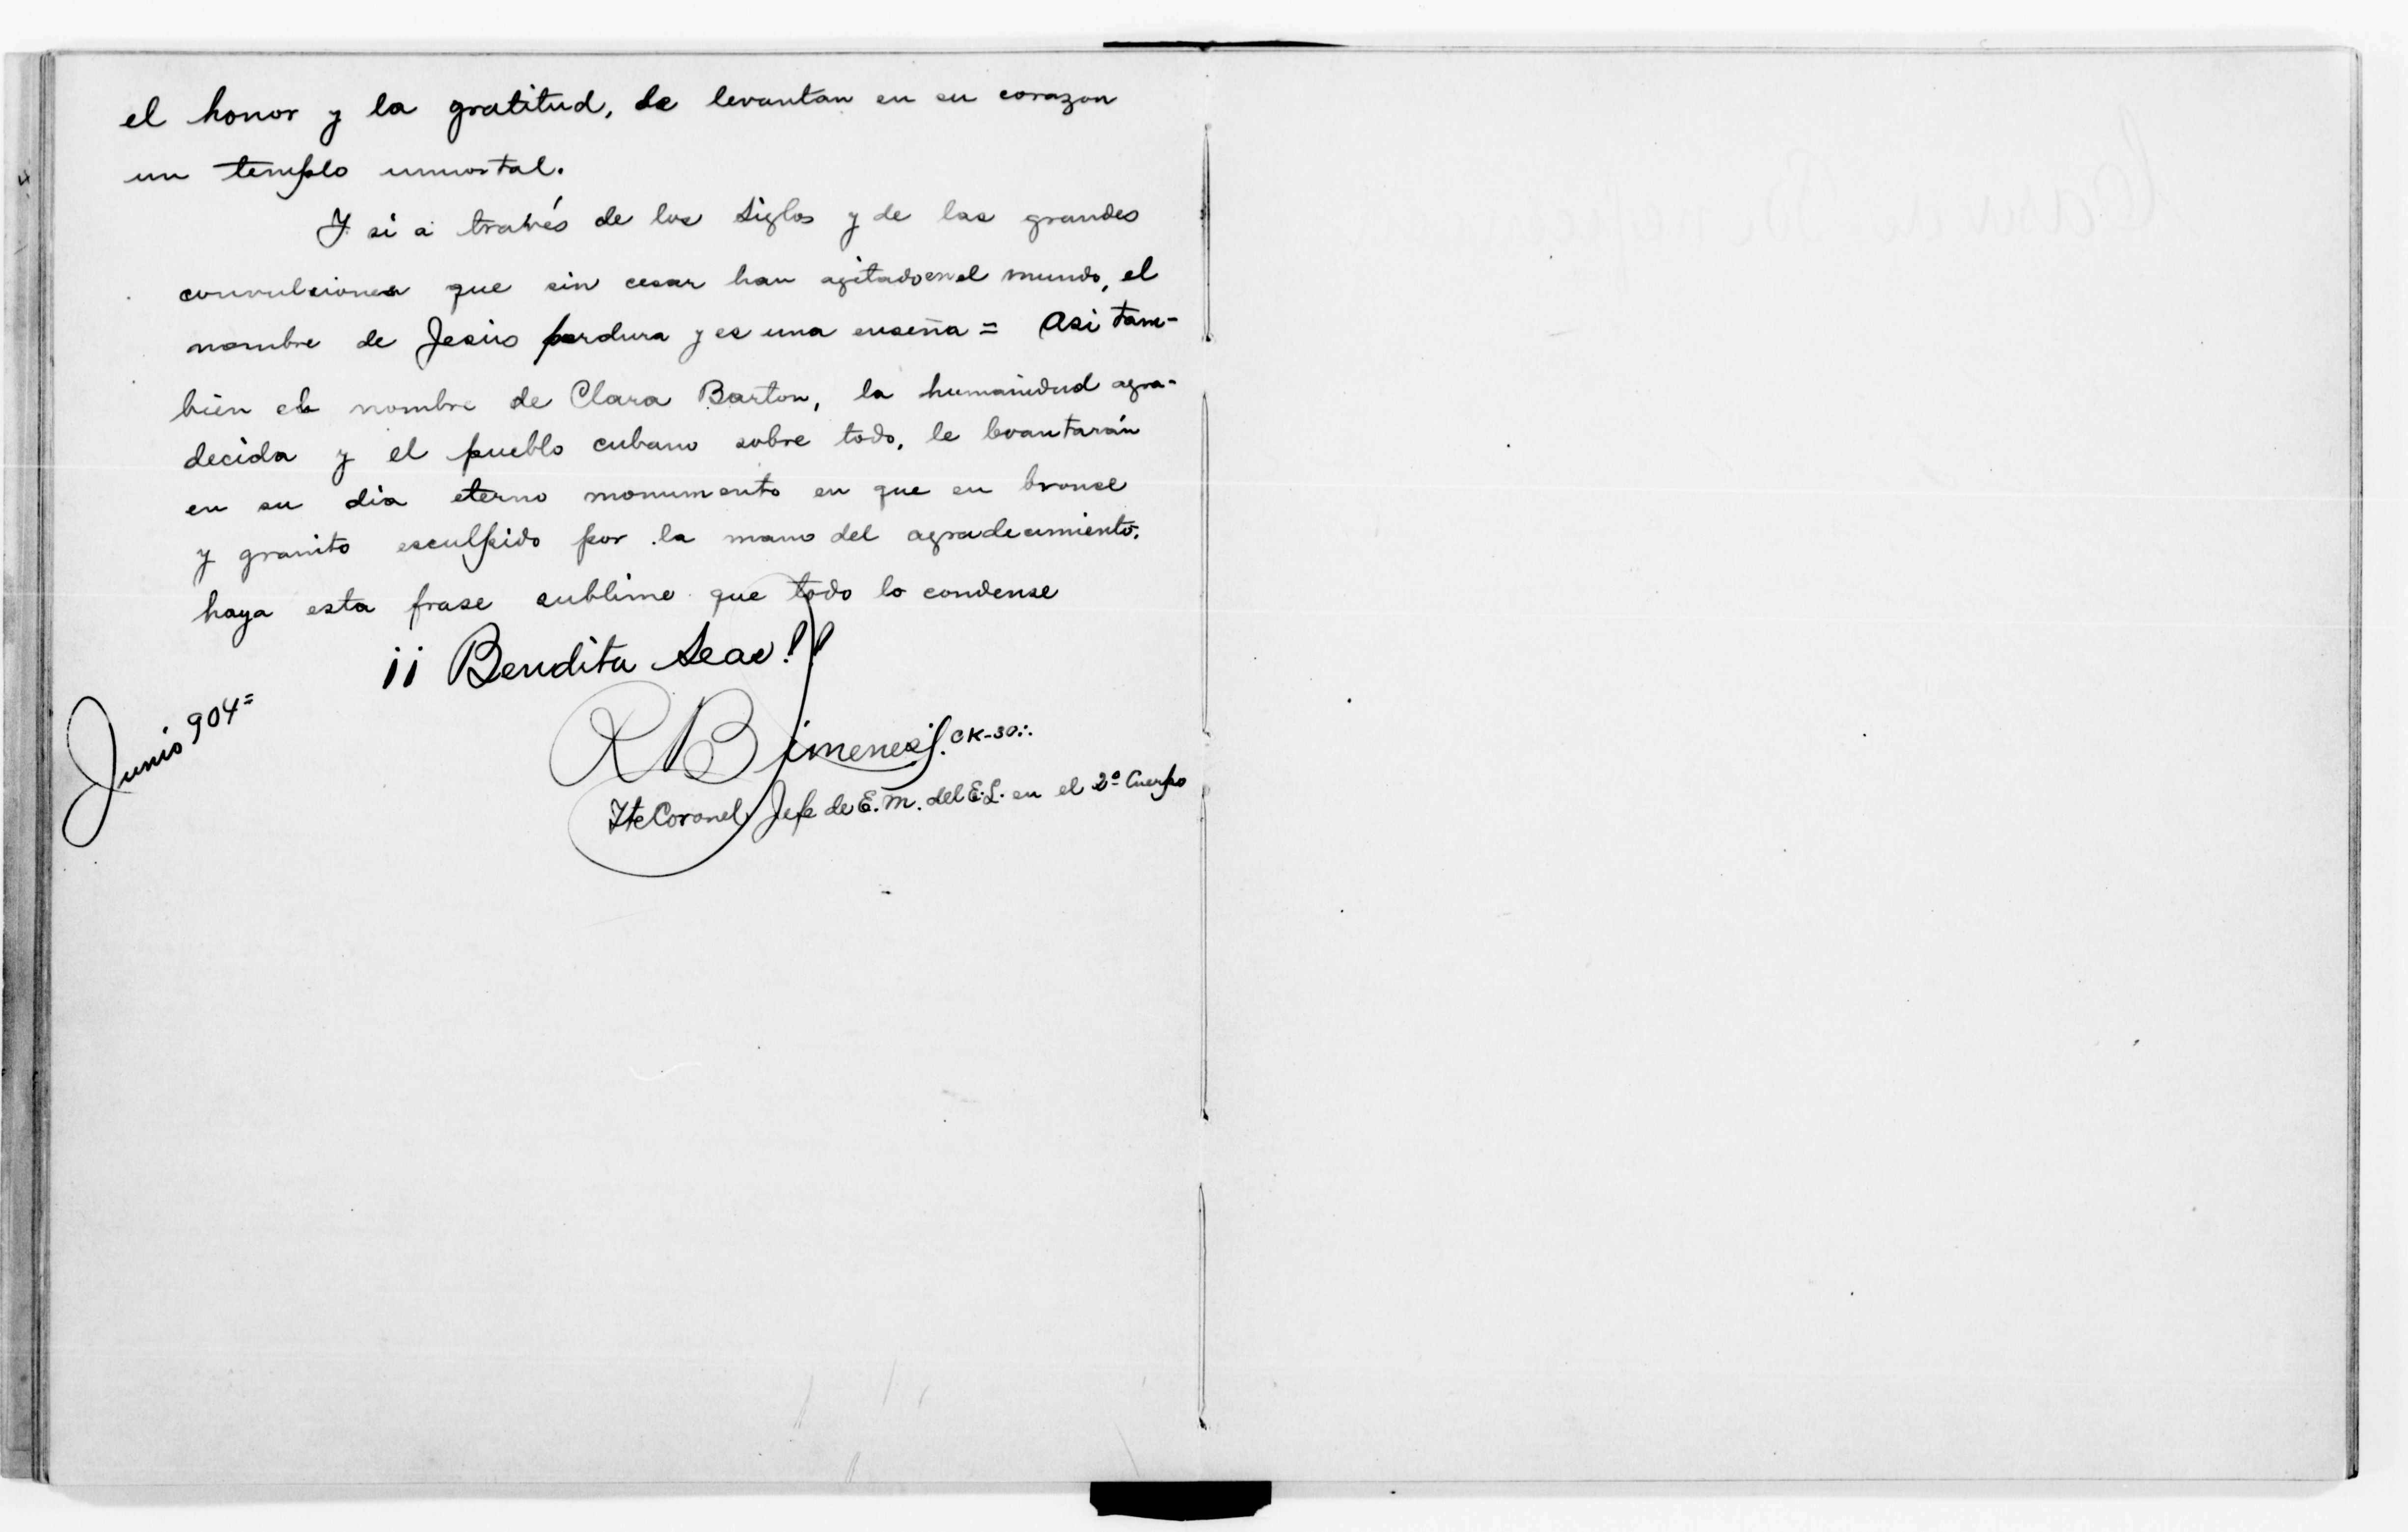 el honor y la gratitud, se levantan en su corazon
un templo inmortal.
Y si a través de los siglos y de las grandes
convulsiones que sin cesar han agitado en el mundo, el
nombre de Jesús perdura y es una enseña = Asi tam-
bién el nombre de Clara Barton, la humanidad agra-
decida y el pueblo cubano sobre todo, le levantarán
en su dia eterno monumento en que en bronse
y granito esculpido por la mano del agradecimiento,
haya esta frase sublime que todo lo condense
¡¡Bendita Seas!!
Junio 904=
R B Jimenes CK-30∴
Tte Coronel Jefe de E. M. del E. L. en el 2º Cuerpo